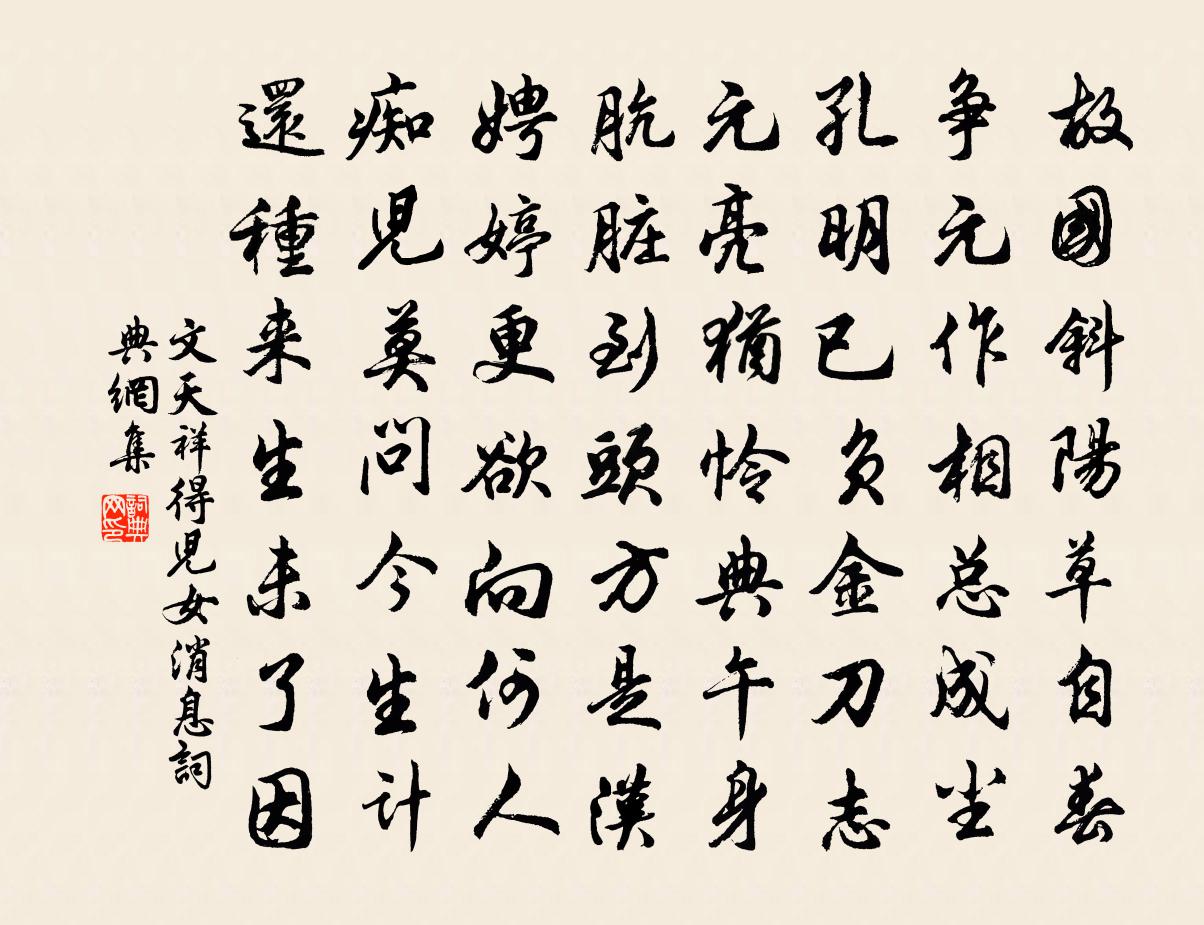 故國斜陽草自春
争元作相总成尘
孔明已负金刀志
元亮猶怜典午身
肮脏到頭方是漢
娉婷更欲向何人
痴児莫問今生计
還種来生未了因
文天祥得児女消息詞
典網集
詞典
网印